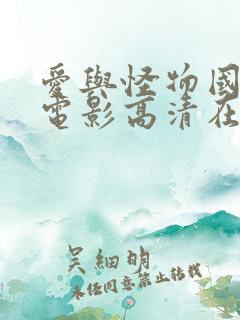 愛與怪物國
電影高清在
吳細明
未任同意禁止转载